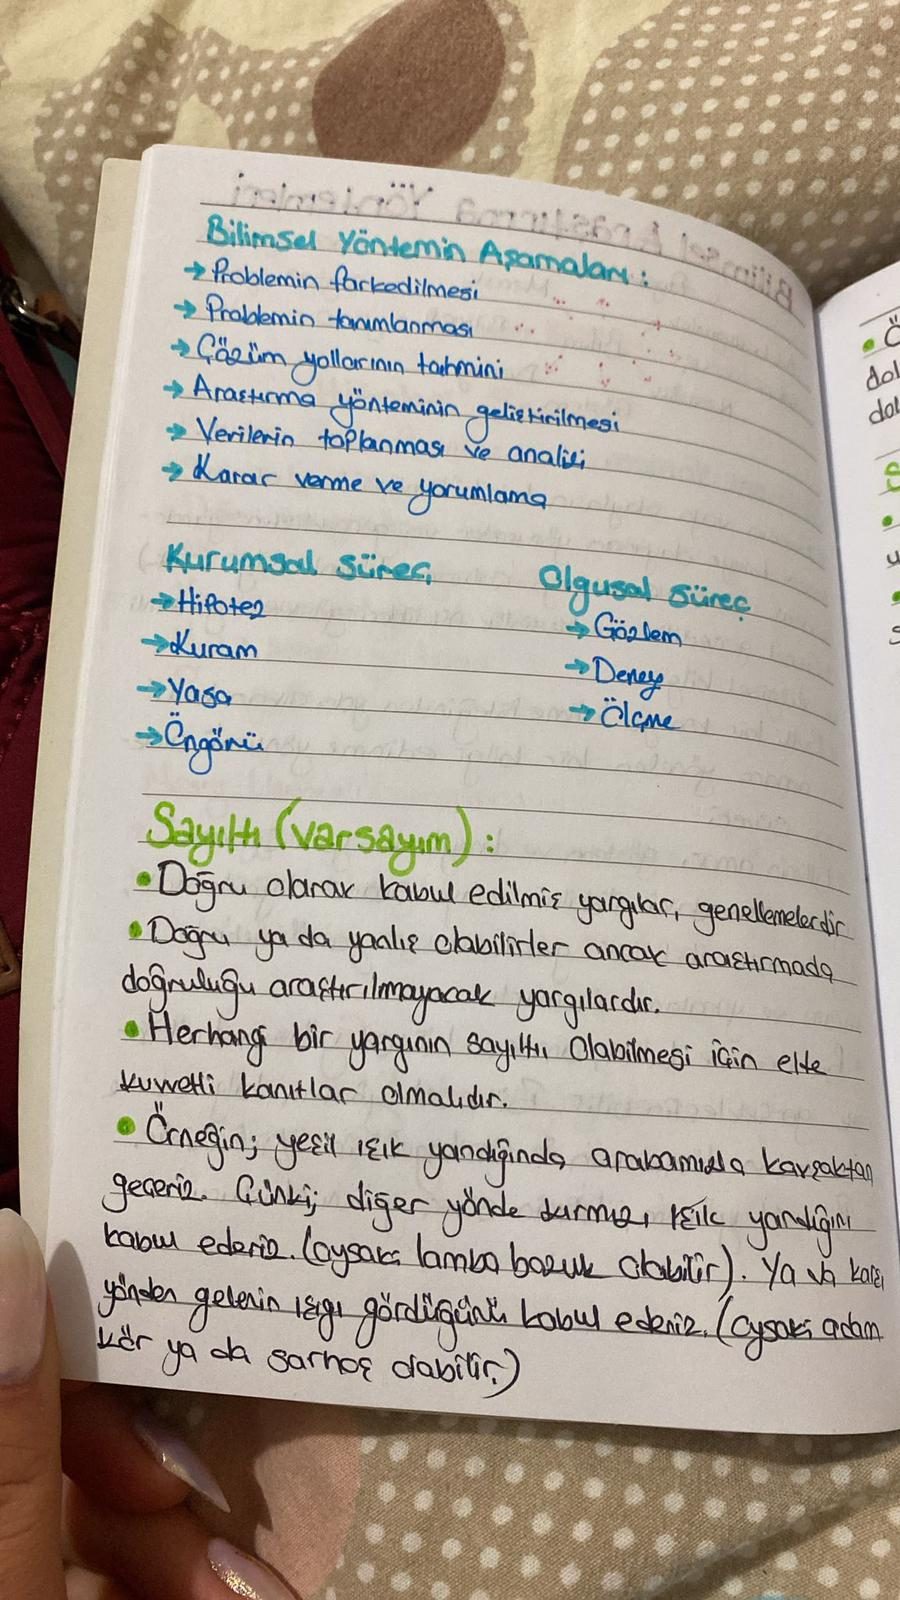 Bilimsel Yöntemin Aşamaları:
→ Problemin farkedilmesi
→ Problemin tanımlanması
→ Çözüm yollarının tahmini
→ Araştırma yönteminin geliştirilmesi
→ Verilerin toplanması ve analizi
→ Karar verme ve yorumlama
Kurumsal Süreç
Olgusal Süreç
→ Hipotez
→ Gözlem
→ Kuram
→ Deney
→ Yasa
→ Ölçme
→ Öngörü
Sayıltı (varsayım):
• Doğru olarak kabul edilmiş yargılar, genellemelerdir
• Doğru ya da yanlış olabilirler ancak araştırmada
doğruluğu araştırılmayacak yargılardır.
• Herhangi bir yargının sayıltı olabilmesi için elde
kuvvetli kanıtlar olmalıdır.
• Örneğin; yeşil ışık yandığında arabamızla kavşaktan
geçeriz. Çünkü; diğer yönde kırmızı ışık yandığını
kabul ederiz. (oysaki lamba bozuk olabilir). Ya da karşı
yönden gelenin ışığı gördüğünü kabul ederiz. (oysaki adam
kör ya da sarhoş olabilir.)